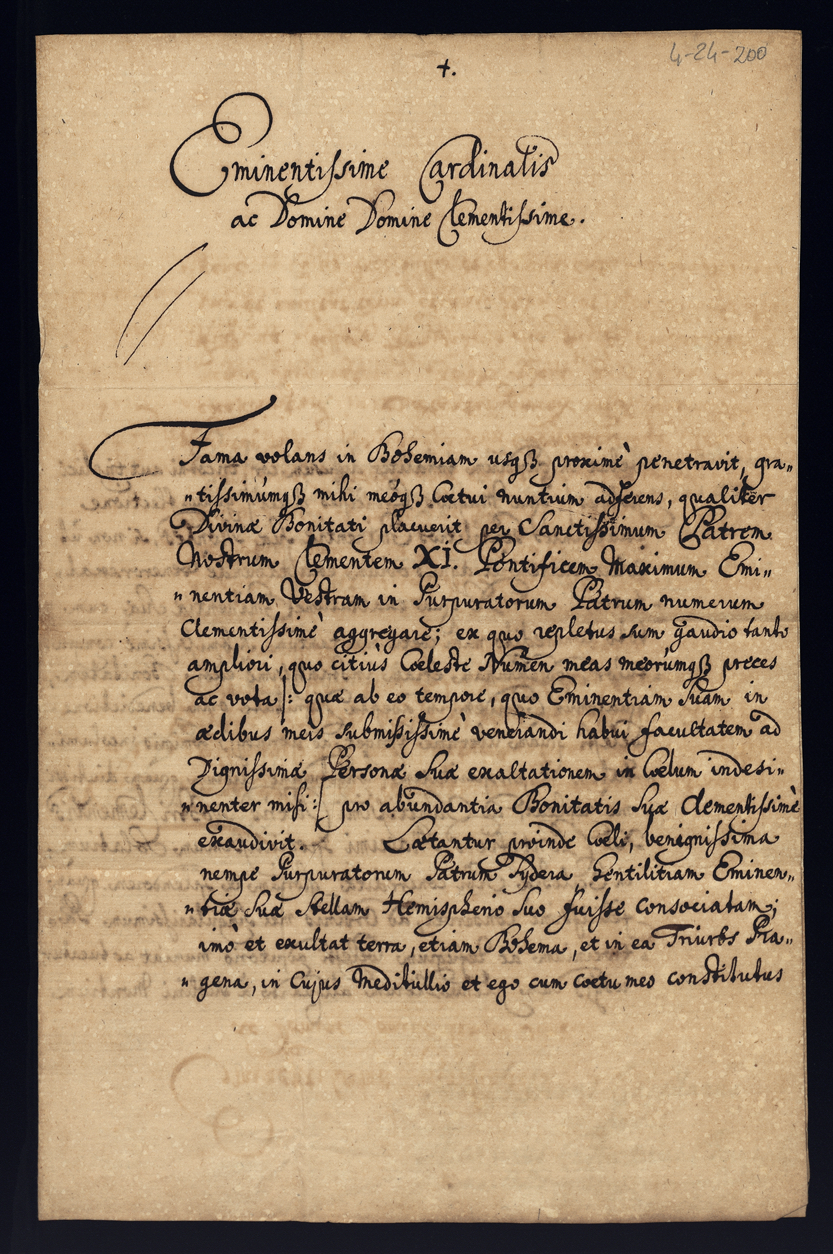 4-24-200
+.
Eminentissime Cardinalis
ac Domine Domine Clementissime.
Fama volans in Bohemiam usqꝫ proximè penetravit, gra„
„tissimúmqꝫ mihi meóqꝫ Coetui nuntium adferens, qualitèr
Divinæ Bonitati placuerit per Sanctissimum Patrem
Nostrum Clementem XI. Pontificem Maximum Emi„
„nentiam Vestram in Purpuratorum Patrum numerum
Clementissimè aggregare; ex quo repletus sum gaudio tantò
ampliori, quo citiùs Coeleste Numen meas meorúmqꝫ preces
ac vota /: quæ ab eo tempore, quo Eminentiam Suam in
ædibus meis submississimè venerandi habui facultatem ad
Dignissimæ Personæ Suæ exaltationem in Coelum indesi„
„nenter misi :/ pro abundantia Bonitatis Suæ Clementissimè
exaudivit. Lætantur proinde Coeli, benignissima
nempe Purpuratorum Patrum Sydera Gentilitiam Eminen„
„tiæ Suæ Stellam Hemispherio Suo fuisse consociatam;
imò et exultat terra, etiam Bohema, et in ea Triurbs Pra„
„gena, in Cujus Meditullio et ego cum Coetu meo constitutus